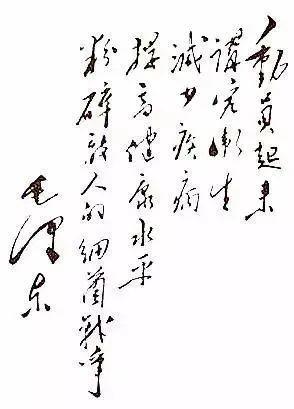 動員起来
講究衛生
減少疾病
提高健康水平
粉碎敌人的细菌戰爭
毛澤东